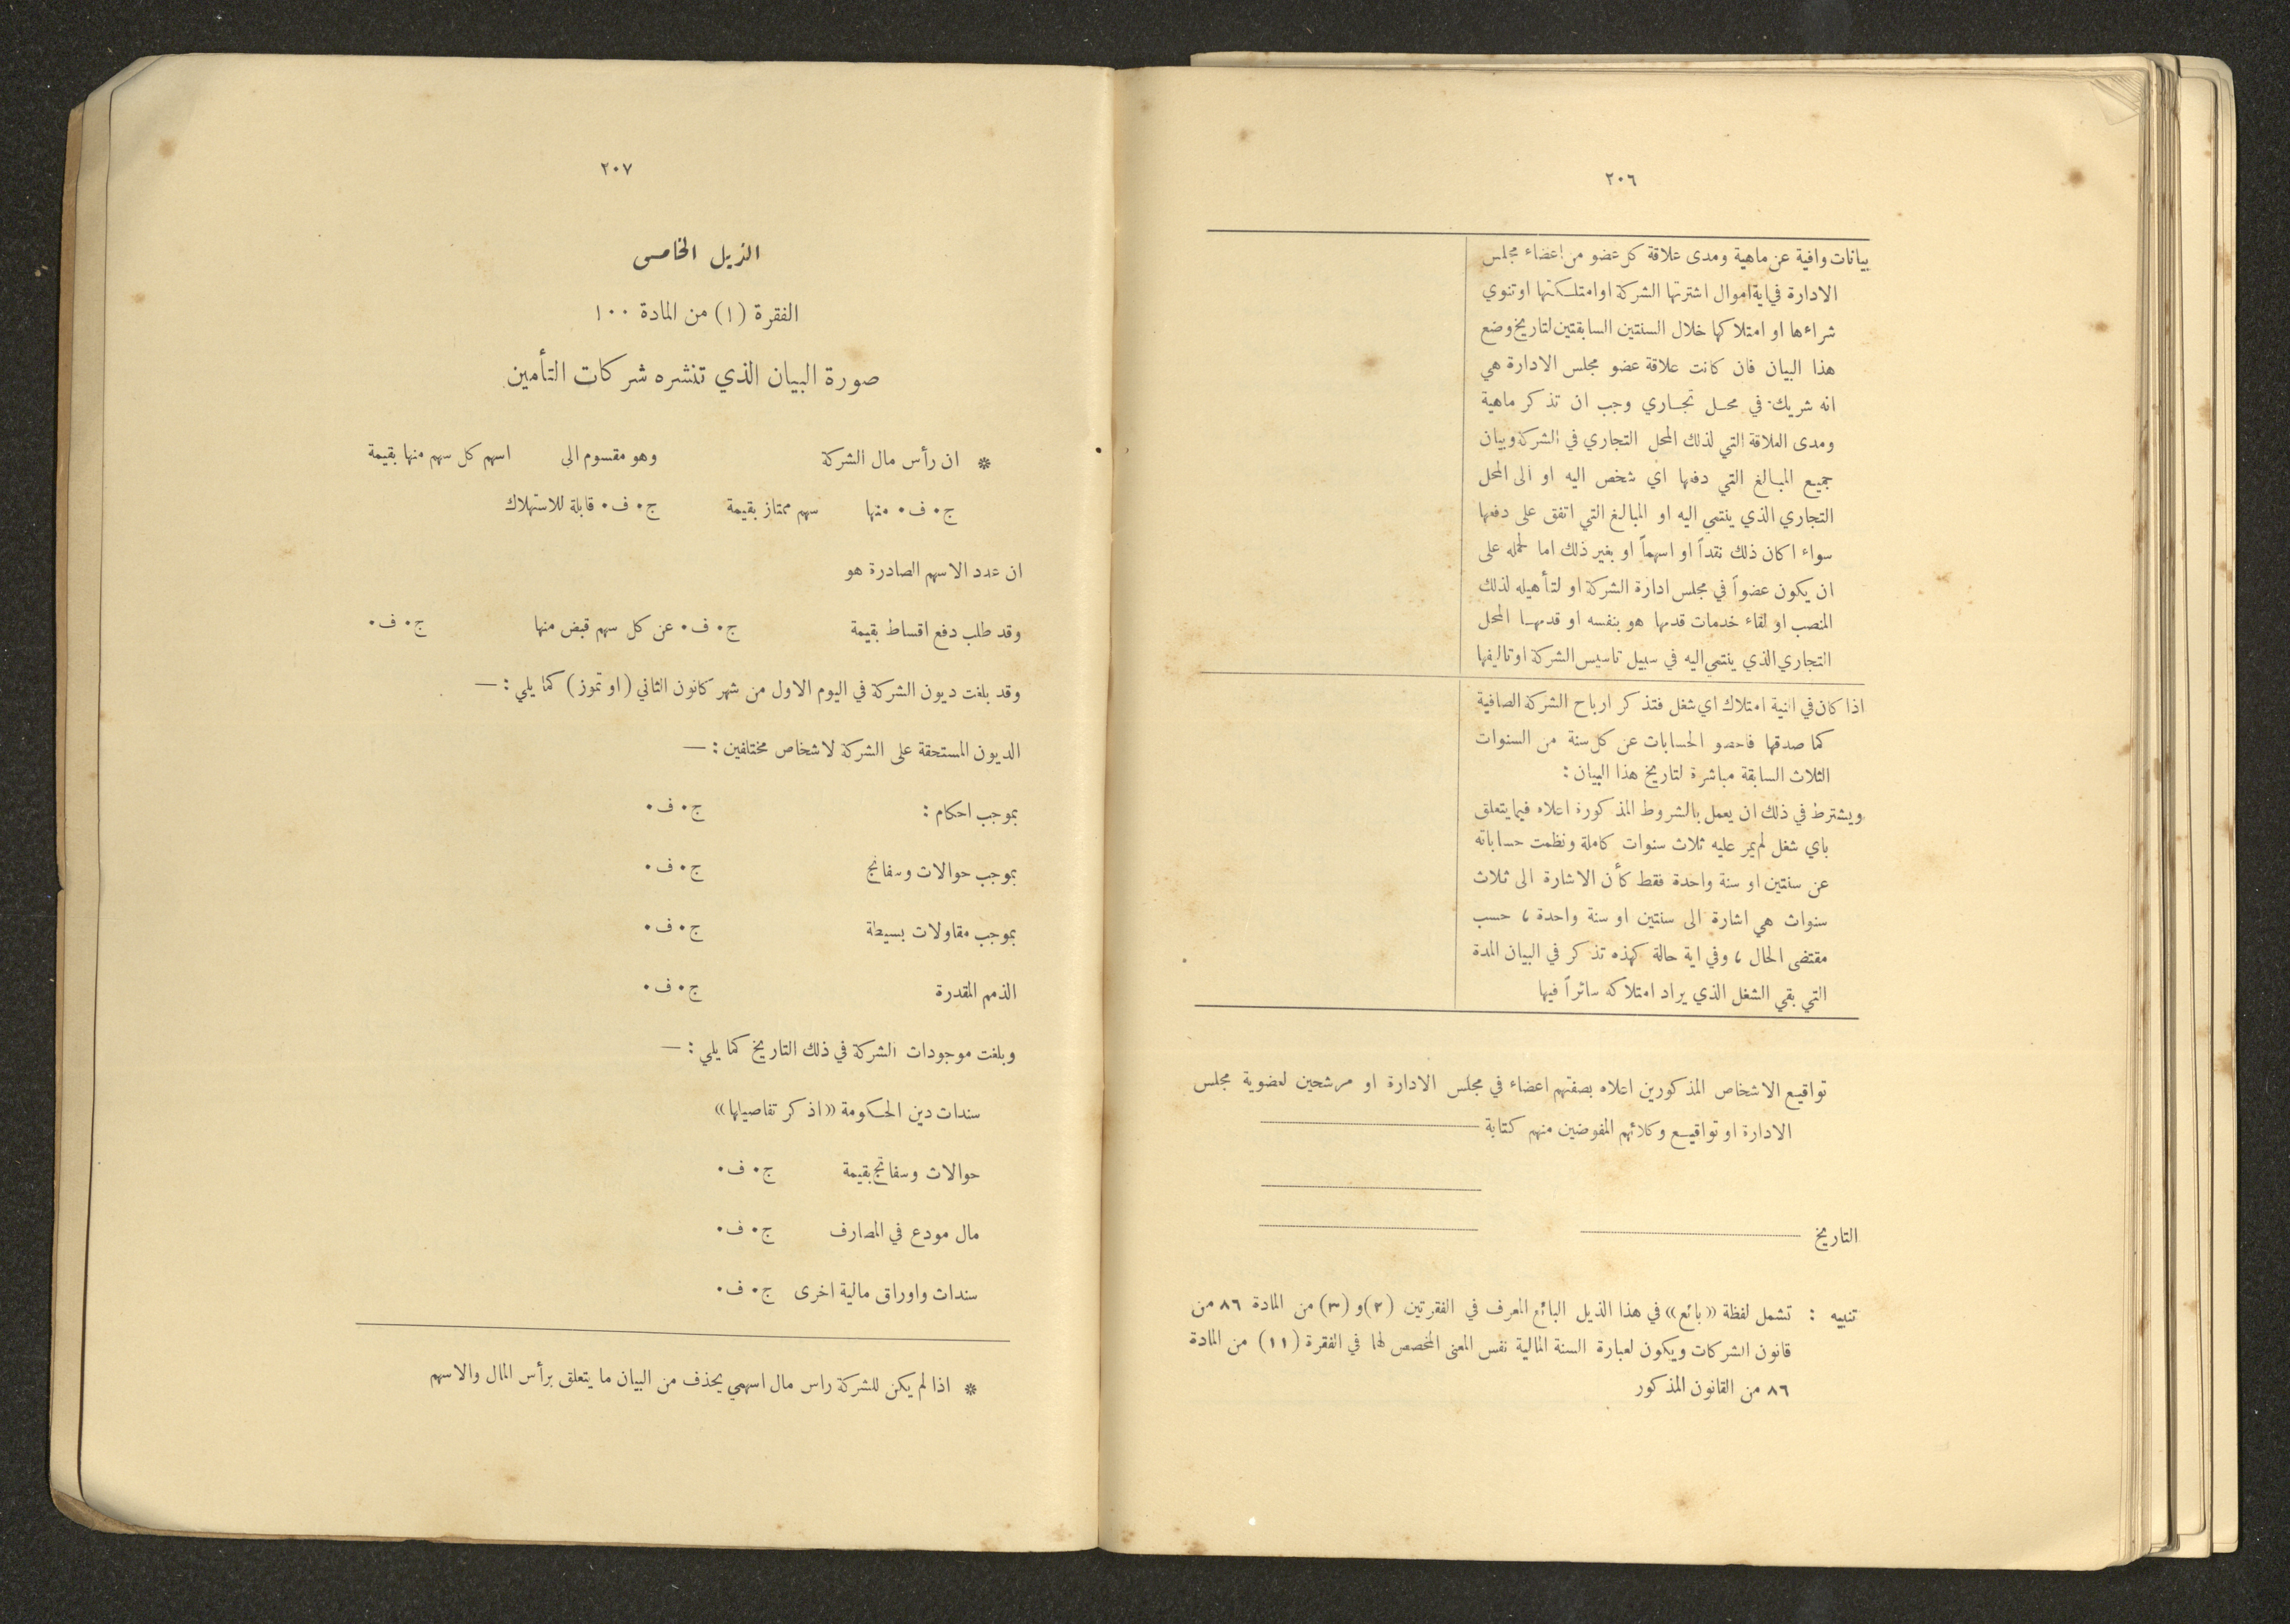 ٢٠٦
بيانات وافية عن ماهية ومدى علاقة كل عضو من اعضاء مجلس
الادارة في اية اموال اشترتها الشركة او امتلكتها او تنوي
شراءها او امتلاكها خلال السنتين السابقتين لتاريخ وضع
هذا البيان فان كانت علاقة عضو مجلس الادارة هي
انه شريك في محل تجاري وجب ان تذكر ماهية
ومدى العلاقة التي لذلك المحل التجاري في الشركة وبيان
جميع المبالغ التي دفعها اي شخص اليه او الى المحل
التجاري الذي ينتمي اليه او المبالغ التي اتفق على دفعها
سواء اكان ذلك نقداً او اسهماً او بغير ذلك اما لحمله على
ان يكون عضواً في مجلس ادارة الشركة او لتأهيله لذلك
المنصب او لقاء خدمات قدمها هو بنفسه او قدمها المحل
التجاري الذي ينتمي اليه في سبيل تاسيس الشركة او تاليفها
اذا كان في النية امتلاك اي شغل فتذكر ارباح الشركة الصافية
كما صدقها فاحصو الحسابات عن كل سنة من السنوات
الثلاث السابقة مباشرة لتاريخ هذا البيان :
ويشترط في ذلك ان يعمل بالشروط المذكورة اعلاه فيما يتعلق
باي شغل لم يمر عليه ثلاث سنوات كاملة ونظمت حساباته
عن سنتين او سنة واحدة فقط كأن الاشارة الى ثلاث
سنوات هي اشارة الى سنتين او سنة واحدة ، حسب
مقتضى الحال ، وفي اية حالة كهذه تذكر في البيان المدة
التي بقي الشغل الذي يراد امتلاكه سائراً فيها
تواقيع الاشخاص المذكورين اعلاه بصفتهم اعضاء في مجلس الادارة او مرشحين لعضوية مجلس
الادارة او تواقيع وكلائهم المفوضين منهم كتابة
التاريخ
تنبيه : تشمل لفظة «بائع» في هذا الذيل البائع المعرف في الفقرتين (٢) و (٣) من المادة ٨٦ من
قانون الشركات ويكون لعبارة السنة المالية نفس المعنى المخصص لها في الفقرة (١١) من المادة
٨٦ من القانون المذكور
٢٠٧
الذيل الخامس
الفقرة (١) من المادة ١٠٠
صورة البيان الذي تنشره شركات التأمين
* ان رأس مال الشركة وهو مقسوم الى اسهم كل سهم منها بقيمة
ج٠ ف٠ منها سهم ممتاز بقيمة ج٠ ف٠ قابلة للاستهلاك
ان عدد الاسهم الصادرة هو
وقد طلب دفع اقساط بقيمة ج٠ ف٠ عن كل سهم قبض منها ج٠ ف٠
وقد بلغت ديون الشركة في اليوم الاول من شهر كانون الثاني (او تموز) كما يلي : —
الديون المستحقة على الشركة لاشخاص مختلفين : —
بموجب احكام : ج٠ ف٠
بموجب حوالات وسفاتج ج٠ ف٠
بموجب مقاولات بسيطة ج٠ ف٠
الذمم المقدرة ج٠ ف٠
وبلغت موجودات الشركة في ذلك التاريخ كما يلي : —
سندات دين الحكومة «اذكر تفاصيلها»
حوالات وسفاتج بقيمة ج٠ ف٠
مال مودع في المصارف ج٠ ف٠
سندات واوراق مالية اخرى ج٠ ف٠
* اذا لم يكن للشركة راس مال اسهمي يحذف من البيان ما يتعلق برأس المال والاسهم